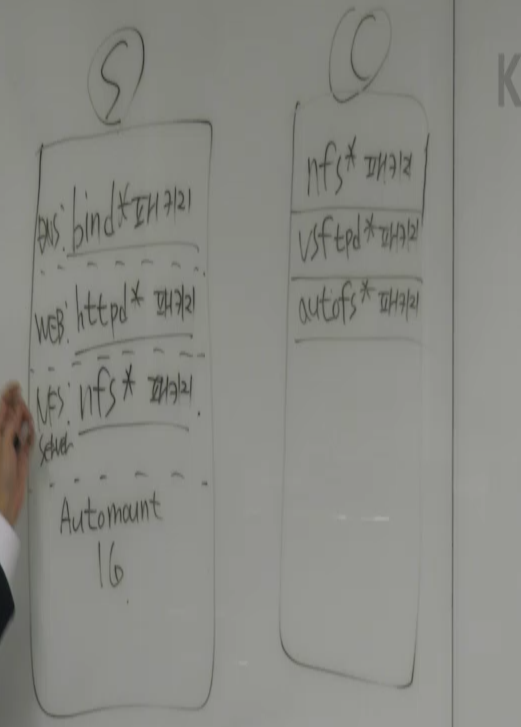 S
DNS: bind* 패키지
WEB: httpd* 패키지
NFS: nfs* 패키지.
Server
Automount
16.
C
nfs* 패키지
vsftpd* 패키지
autofs* 패키지
K